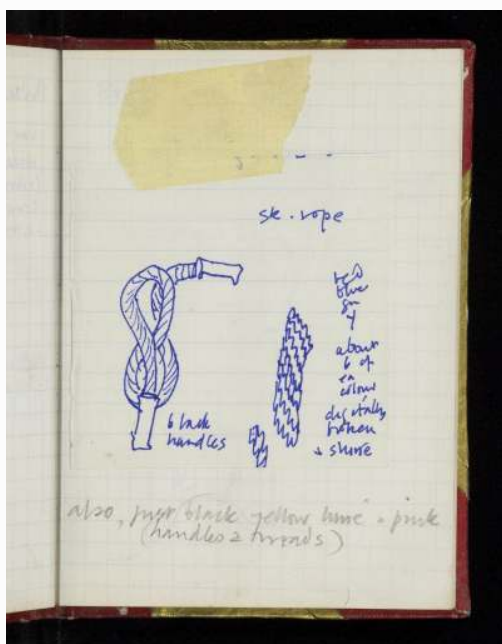 sk. rope
red
blue
gn
Y
about
6 of
ea
colour
digitally
broken
+ shine
black
handles
also, just black yellow - pink
(handles & threads)